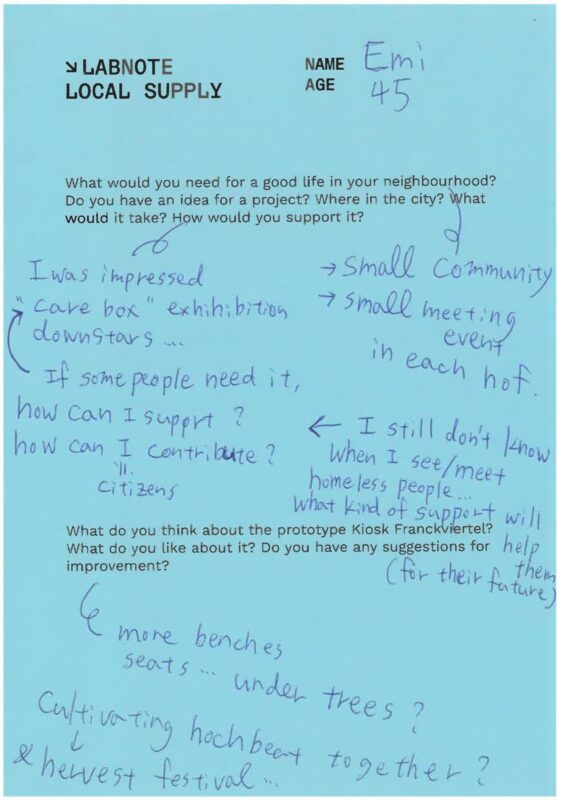 ↘ LABNOTE
LOCAL SUPPLY
NAME Emi
AGE 45
What would you need for a good life in your neighbourhood?
Do you have an idea for a project? Where in the city? What
would it take? How would you support it?
I was impressed
"care box" exhihibition
downstars ...
If some people need it,
how can I support ?
how can I contribute ?
citizens
→ Small Community
→ small meeting
event
in each hof.
← I still don't know
when I see/meet
homeless people...
what kind of support will
help
them
(for their future)
What do you think about the prototype Kiosk Franckviertel?
What do you like about it? Do you have any suggestions for
improvement?
more benches
seats ... under trees ?
Cultivating hochbeet together ?
& hervest festival ...